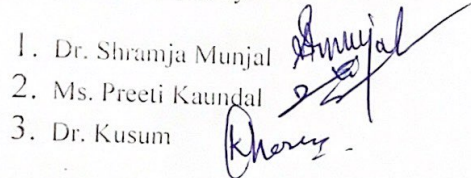 1. Dr. Shramja Munjal
2. Ms. Preeti Kaundal
3. Dr. Kusum